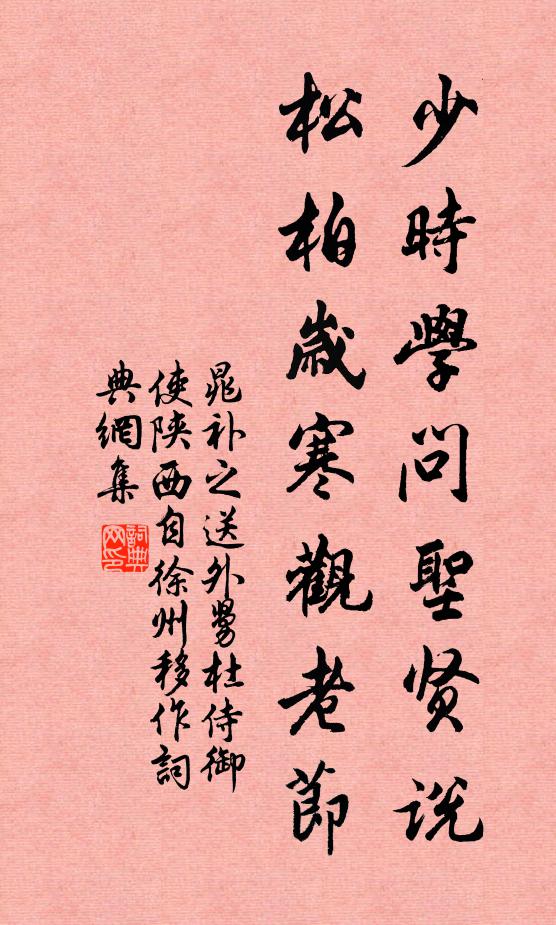 少時學問聖贤说
松柏歲寒觀老節
晁补之送外舅杜侍御
使陕西自徐州移作詞
典網集
詞典网印